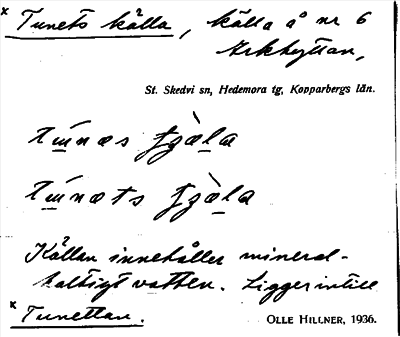 x Tunets källa, källa å nr 6
Arkhyttan,
St. Skedvi sn, Hedemora tg, Kopparbergs län.
Källan innehåller mineral-
haltigt vatten. Ligger intill
x Tunettan.
OLLE HILLNER, 1936.